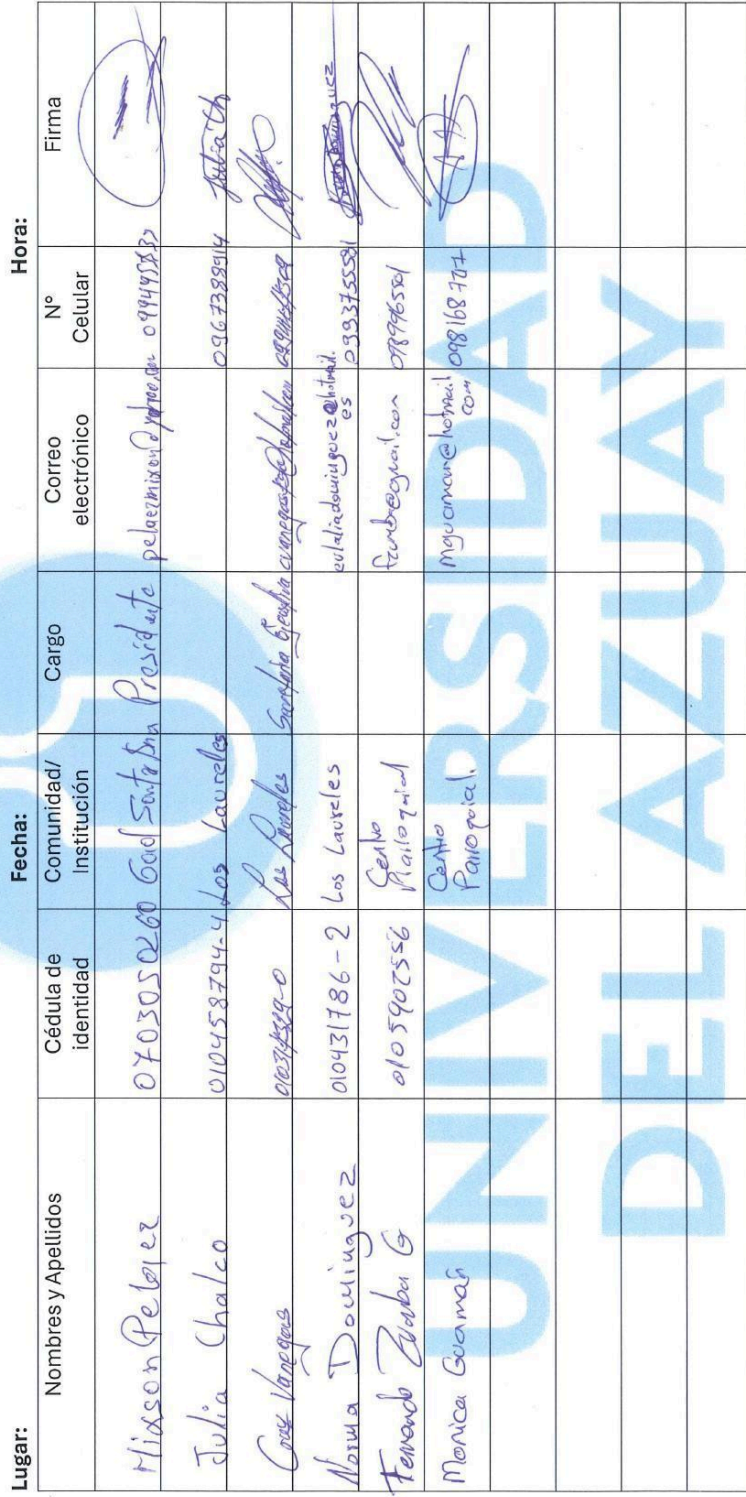 Lugar: Fecha: Hora:
Nombres y Apellidos Cédula de identidad Comunidad/ Institución Cargo Correo electrónico N° Celular Firma
Mixson Pelaez 0703050260 Gad Santa Ana Presidente
Julia Chalco 010458794-4 Los Laureles 0967388914 Julia Ch
Vanegas Los Laureles Secretaria Ejecutiva
Norma Dominguez 010431786-2 Los Laureles eulaliadominguez@hotmail.es 0993755581
Fernando Zumba G 0105902556 Centro Parroquial
Monica Guaman Centro Parroquial. mguaman@hotmail.com 0981168707
UNIVERSIDAD
DEL AZUAY